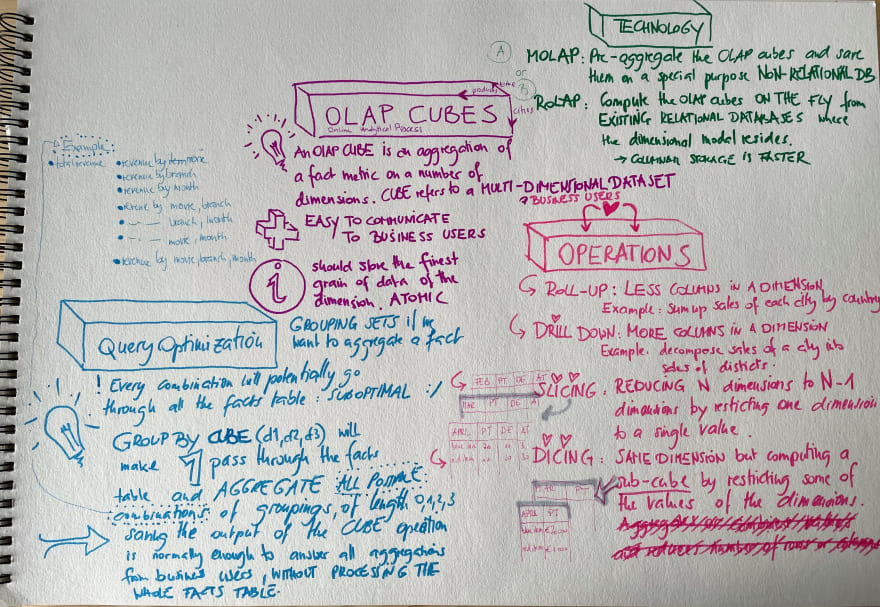 TECHNOLOGY
A
MOLAP: Pre-aggregate the OLAP cubes and save
them on a special purpose NON-RELATIONAL DB
or
B
ROLAP: Compute the OLAP cubes ON THE FLY from
EXISTING RELATIONAL DATABASES where
the dimensional model resides.
→ COLUMNAR STORAGE IS FASTER
products
time
cities
OLAP CUBES
Online Analytical Process
An OLAP CUBE is an aggregation of
a fact metric on a number of
dimensions. CUBE refers to a MULTI-DIMENSIONAL DATASET
EASY TO COMMUNICATE
TO BUSINESS USERS
i
should store the finest
grain of data of the
dimension. ATOMIC
Example:
• total revenue
• revenue by
• revenue by branch
• revenue by month
• revenue by movie, branch
• - - - branch, month
• - - - movie, month
• revenue by movie, branch, month
Query Optimization
GROUPING SETS if we
want to aggregate a fact
! Every combination will potentially go
through all the facts table: SUBOPTIMAL :/
GROUP BY CUBE (d1,d2,d3) will
make 1 pass through the facts
table and AGGREGATE ALL POSSIBLE
combinations of groupings, of length 0,1,2,3
saving the output of the CUBE operation
is normally enough to answer all aggregations
from business users, WITHOUT PROCESSING THE
WHOLE FACTS TABLE.
BUSINESS USERS
OPERATIONS
ROLL-UP: LESS COLUMNS IN A DIMENSION
Example: Sum up sales of each city by country
DRILL DOWN: MORE COLUMNS IN A DIMENSION
Example: decompose sales of a city into
sales of districts.
SLICING: REDUCING N dimensions to N-1
dimensions by resticting one dimension
to a single value.
FEB PT DE AT
MAR PT DE A
APRIL PT DE AT
DICING: SAME DIMENSION but computing a
sub-cube by restricting some of
the values of the dimensions.
MAR PT
APRIL PT